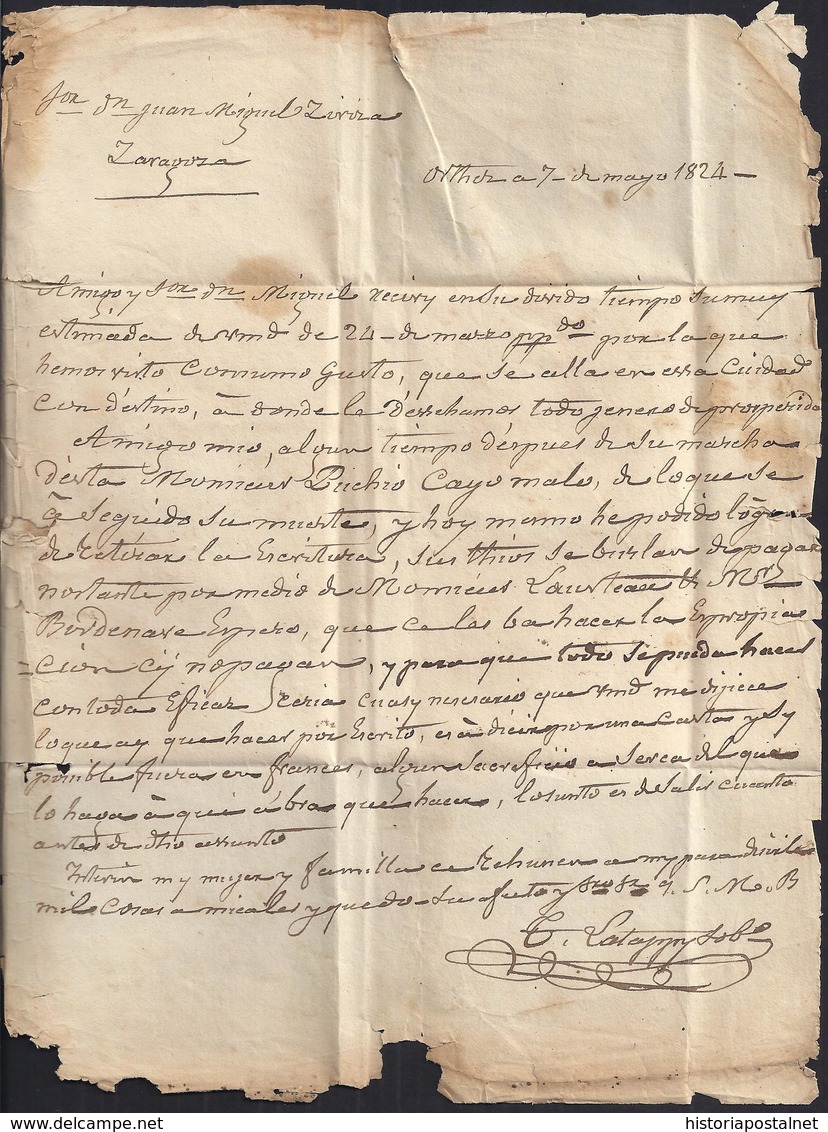 Sor. dn Juan Miguel
Zaragoza
Orthez a 7- de mayo 1824 -
Amigo y Sor dn Miguel reciby en su devido tiempo su muy
estimada de vmd de 24- de marzo ppdo por la que
hemos visto con sumo gusto, que se alla en essa Ciudad
con destino, à donde le dessehamos todo genero de prosperidad
Amigo mio, algun tiempo déspues de su marcha
désta Monsieur Puchio Cayo malo, de lo que se
à seguido su muerte, y hoy mamo he podido
de retirar la Escritura, sus thios se burlan de pagar
nostante por medio de Monsieur Lousteau &
Bordenave Espero, que se les ba hacer la Expropia
=cion cy no pagan, y para que todo sepueda hacer
con toda Eficaz Ceria cuasy nesesario que vmd me dijiese
lo que ay que hacer por Escrito, es à dicir por una carta y sy
posible fuera en frances, algun sacrificio a serca del que
lo haga à qui àbra que hacer, lo sunto es de salir cuanto
antes de dho assunto
my mujer y familla se rehunen a my para disirle
mil cosas amicales y quedo su afecto y q. S. M. B
Latappy
historiapostalnet